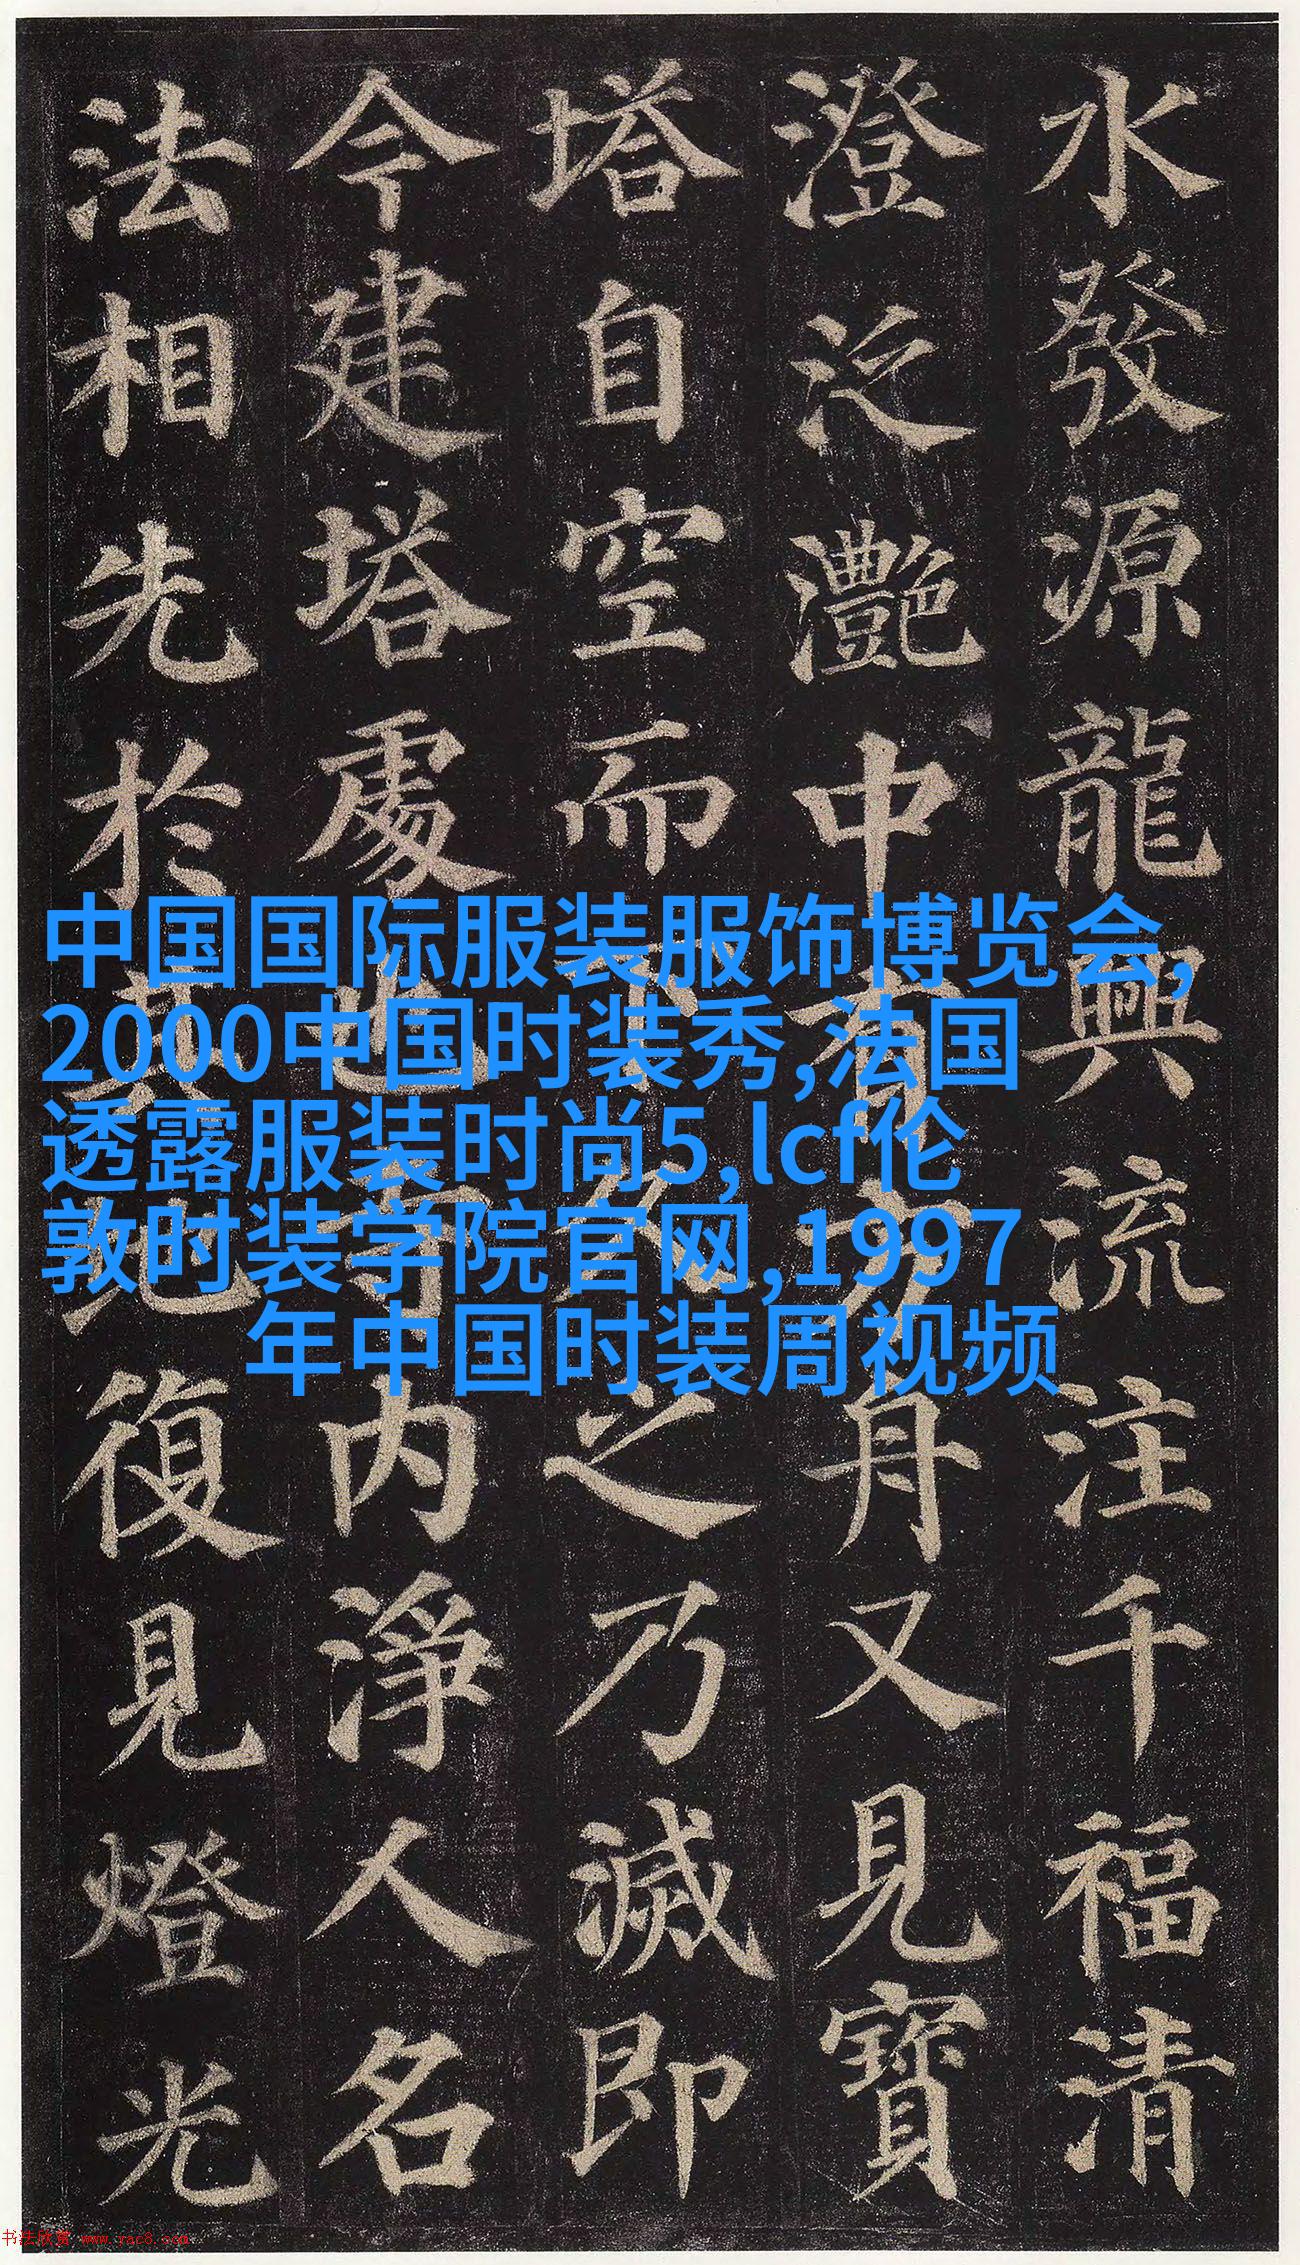 水發源龍興流注千福清
澄泛灩中有方舟又見寶
塔自空而下久之乃滅即
今建塔處也寺内淨人名
法相先於其地復見燈光
中国国际服装服饰博览会,
2000中国时装秀,法国
透露服装时尚5,lcf伦
敦时装学院官网,1997
年中国时装周视频
书法欣赏 www.yac8.com